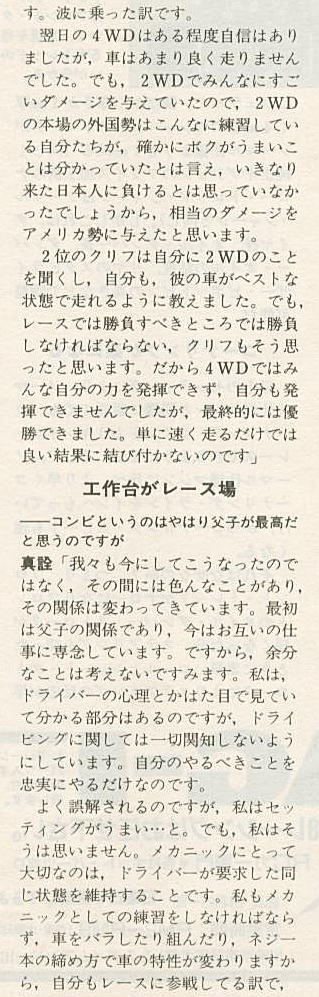 す。波に乗った訳です。
　翌日の４ＷＤはある程度自信はあり
ましたが，車はあまり良く走りません
でした。でも，２ＷＤでみんなにすご
いダメージを与えていたので，２ＷＤ
の本場の外国勢はこんなに練習してい
る自分たちが，確かにボクがうまいこ
とは分かっていたとは言え，いきなり
来た日本人に負けるとは思っていなか
ったでしょうから，相当のダメージを
アメリカ勢に与えたと思います。
　２位のクリフは自分に２ＷＤのこと
を聞くし，自分も，彼の車がベストな
状態で走れるように教えました。でも，
レースでは勝負すべきところでは勝負
しなければならない，クリフもそう思
ったと思います。だから４ＷＤではみ
んな自分の力を発揮できず，自分も発
揮できませんでしたが，最終的には優
勝できました。単に速く走るだけでは
良い結果に結び付かないのです」
工作台がレース場
──コンビというのはやはり父子が最高だ
と思うのですが
真詮「我々も今にしてこうなったので
はなく，その間には色んなことがあり，
その関係は変わってきています。最初
は父子の関係であり，今はお互いの仕
事に専念しています。ですから，余分
なことは考えないですみます。私は，
ドライバーの心理とかはた目で見てい
て分かる部分はあるのですが，ドライ
ビングに関しては一切関知しないよう
にしています。自分のやるべきことを
忠実にやるだけなのです。
　よく誤解されるのですが，私はセッ
ティングがうまい…と。でも，私はそ
うは思いません。メカニックにとって
大切なのは，ドライバーが要求した同
じ状態を維持することです。私もメカ
ニックとしての練習をしなければなら
ず，車をバラしたり組んだり，ネジ一
本の締め方で車の特性が変わりますか
ら，自分もレースに参戦してる訳で，